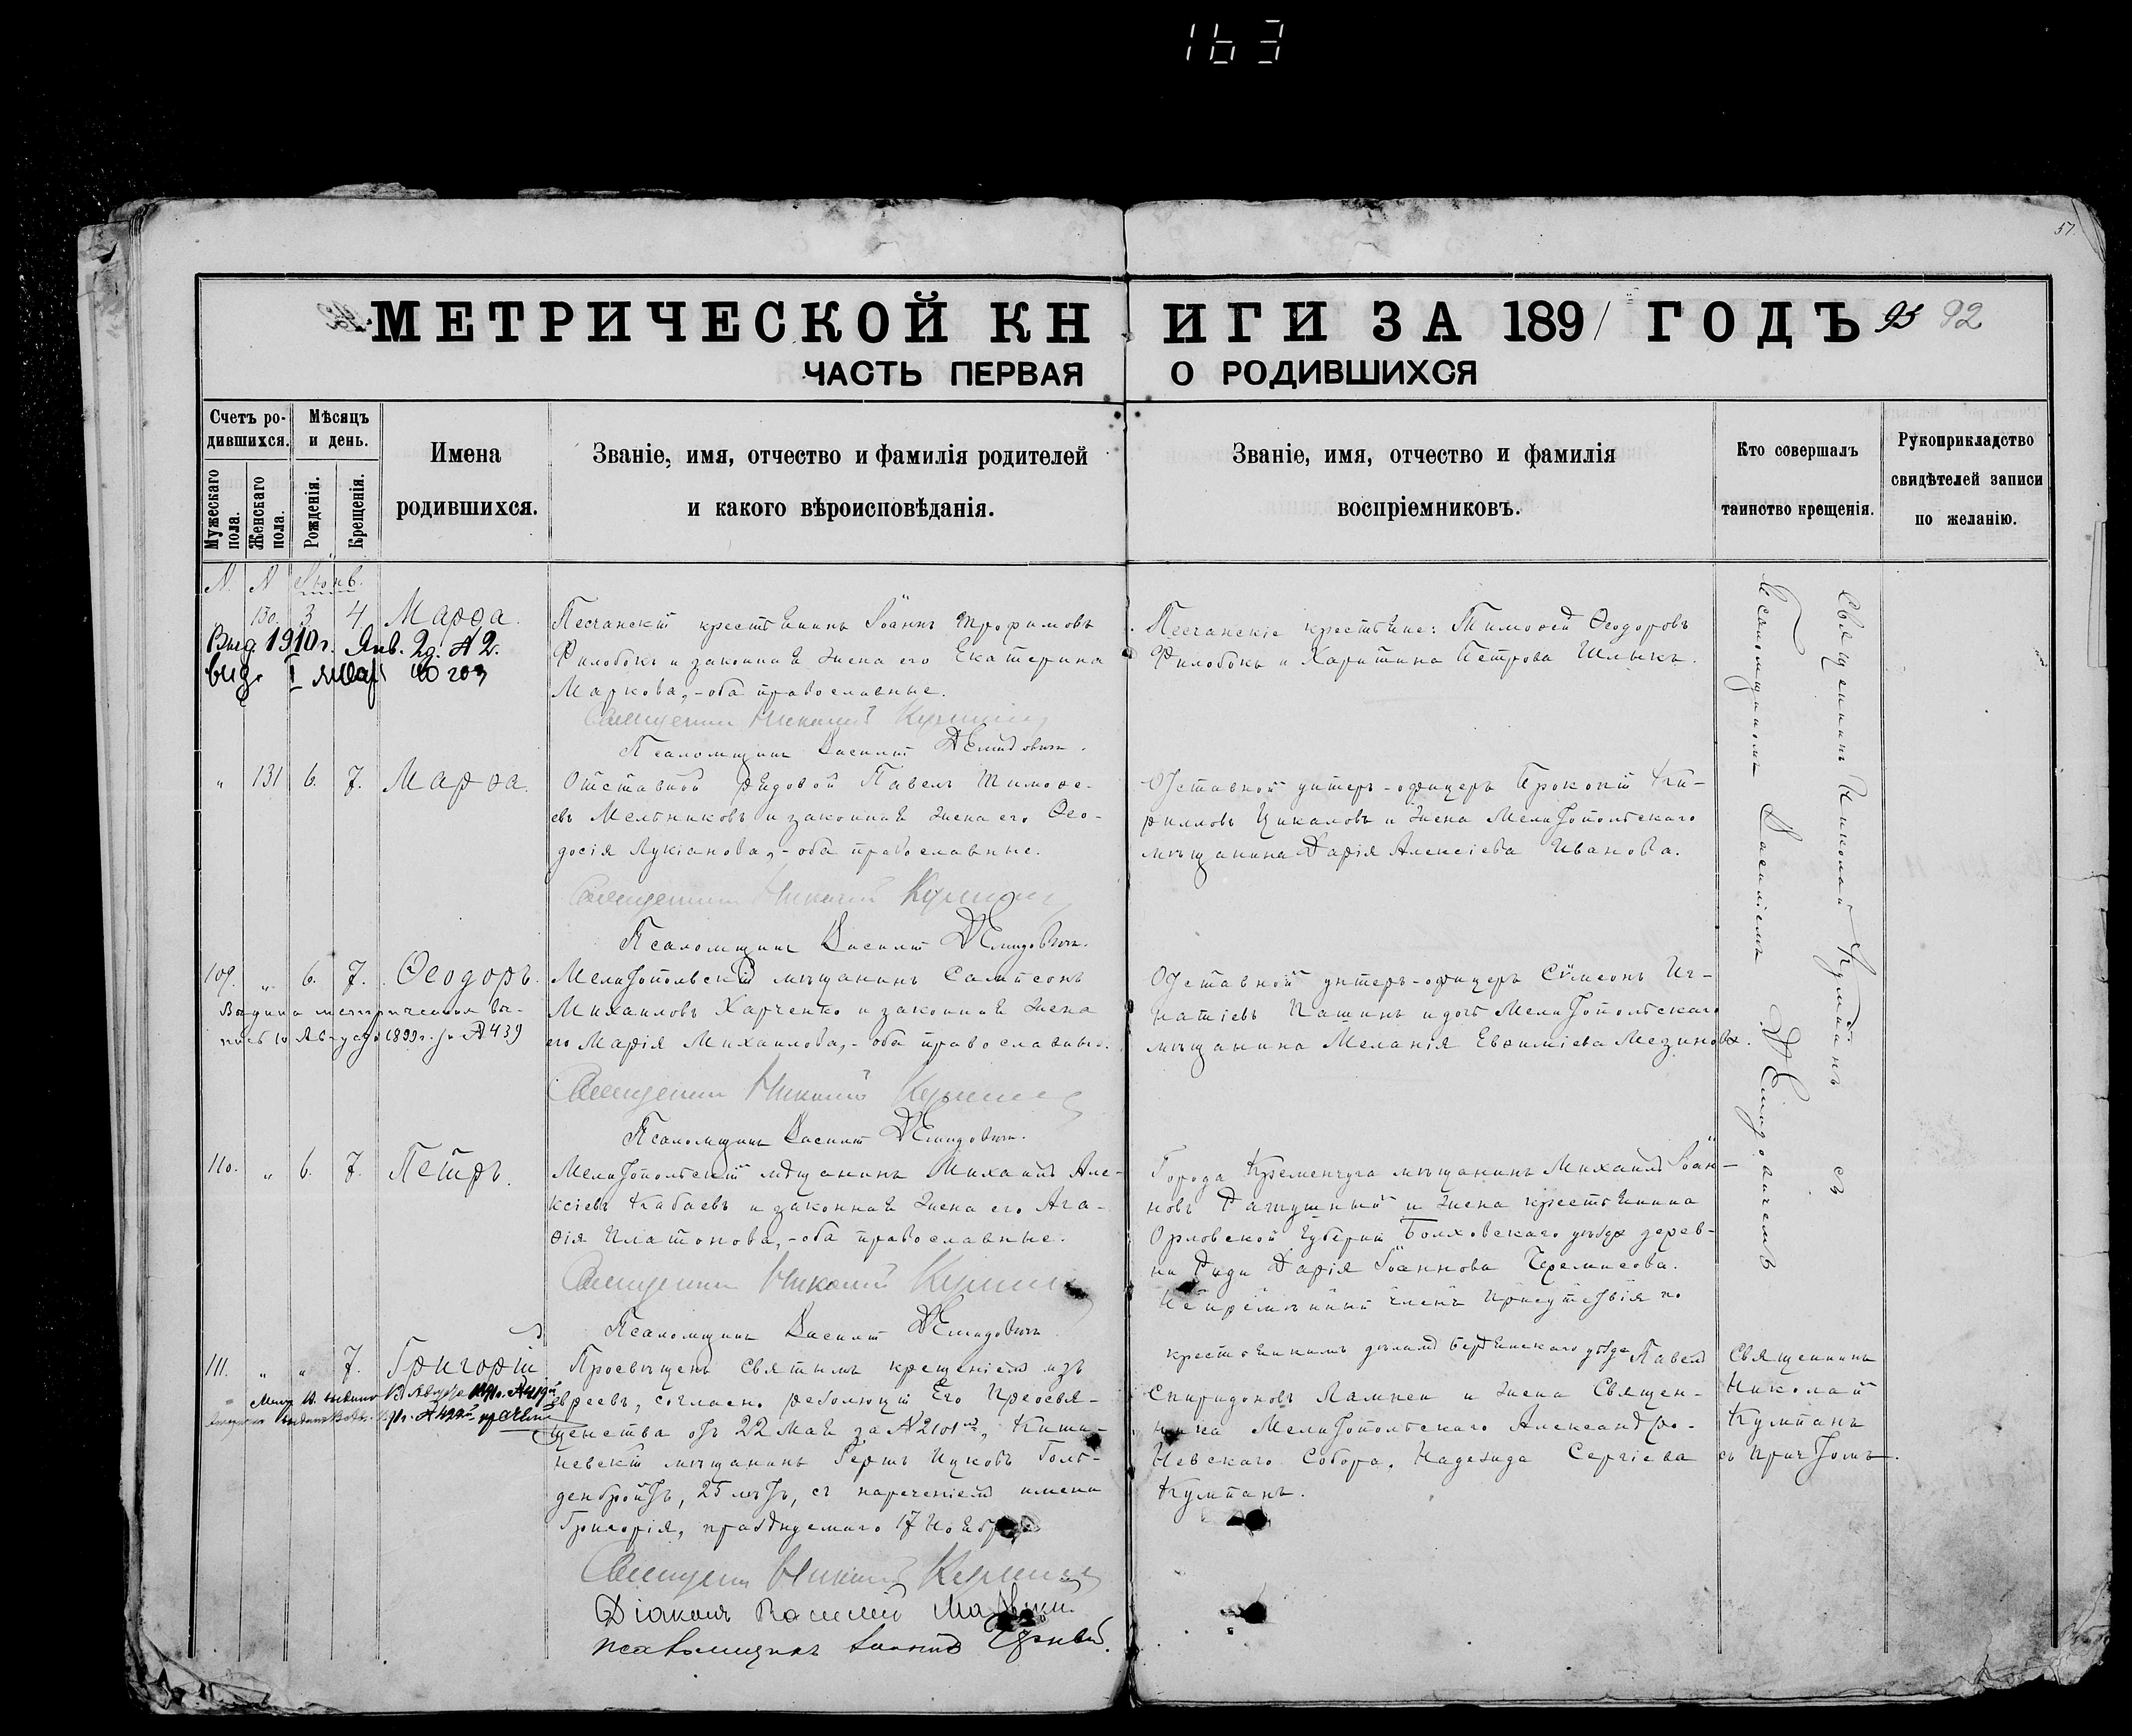 163
57.
МЕТРИЧЕСКОЙ КНИГИ ЗА 1891 ГОДЪ 92
ЧАСТЬ ПЕРВАЯ О РОДИВШИХСЯ
Счетъ ро-
дившихся.
Мужескаго
пола.
Женскаго
пола.
Мѣсяцъ
и день.
Рожденія.
Крещенія.
Имена
родившихся.
Званіе, имя, отчество и фамилія родителей
и какого вѣроисповѣданія.
Званіе, имя, отчество и фамилія
воспріемниковъ.
Кто совершалъ
таинство крещенія.
Рукоприкладство
свидѣтелей записи
по желанію.
130. 3. 4. Марѳа.
Выд. 1910 г. Янв. 2 д. № 2.
Песчанскій крестьянинъ Іоаннъ Трофимовъ
Филобокъ и законная жена его Екатерина
Маркова, - оба православные.
Священникъ Николай
Псаломщикъ Василій Демидовичъ.
Песчанскіе крестьяне: Тимоѳей Ѳеодоровъ
Филобокъ и Харитина Петрова Шлыкъ.
Священникъ Николай Кумпанъ съ
Псаломщикомъ Василіемъ Демидовичемъ
" 131 6. 7. Марѳа.
Отставной рядовой Павелъ Тимоѳе-
евъ Мельниковъ и законная жена его Ѳео-
досія Лукіанова, - оба православные.
Священникъ Николай
Псаломщикъ Василій Демидовичъ.
Отставной унтеръ-офицеръ Прокопій Ки-
рилловъ Цикаловъ и жена Мелитопольскаго
мѣщанина Дарія Алексіева Иванова.
109. " 6. 7. Ѳеодоръ.
Выдана метрическая вы-
пись 10 Августа 1899 г. за № 439
Мелитопольскій мѣщанинъ Сампсонъ
Михаиловъ Харченко и законная жена
его Марія Михаилова, - оба православные.
Священникъ Николай
Псаломщикъ Василій Демидовичъ.
Отставной унтеръ-офицеръ Сѵмеонъ Иг-
натіевъ Пашинъ и дочь Мелитопольскаго
мѣщанина Меланія Евѳиміева Мезинова.
110. " 6. 7. Петръ.
Мелитопольскій мѣщанинъ Михаилъ Але-
ксіевъ Кабаевъ и законная жена его Ага-
ѳія Платонова, - оба православные.
Священникъ Николай
Псаломщикъ Василій Демидовичъ
Города Кременчуга мѣщанинъ Михаилъ Іоан-
новъ и жена крестьянина
Орловской Губерніи Болховскаго уѣзда дерев-
ни Дарія Іоаннова Черемисова.
111. " " 7. Григорій
Просвѣщенъ Святымъ крещеніемъ изъ
евреевъ, согласно резолюціи Его Преосвя-
щенства отъ 22 Мая за № 2101, Киши-
невскій мѣщанинъ Гершъ Ицковъ Голь-
денбройтъ, 25 лѣтъ, съ нареченіемъ имени
Григорія, празднуемаго 17 Ноября
Священникъ Николай
Діаконъ Василій
Псаломщикъ
Непремѣнный Членъ Присутствія по
крестьянскимъ дѣламъ Бердянскаго уѣзда Павелъ
Спиридоновъ Лампси и жена Священ-
ника Мелитопольскаго Александро-
Невскаго Собора, Надежда Сергіева
Кумпанъ.
Священникъ
Николай
Кумпанъ
съ причтомъ.